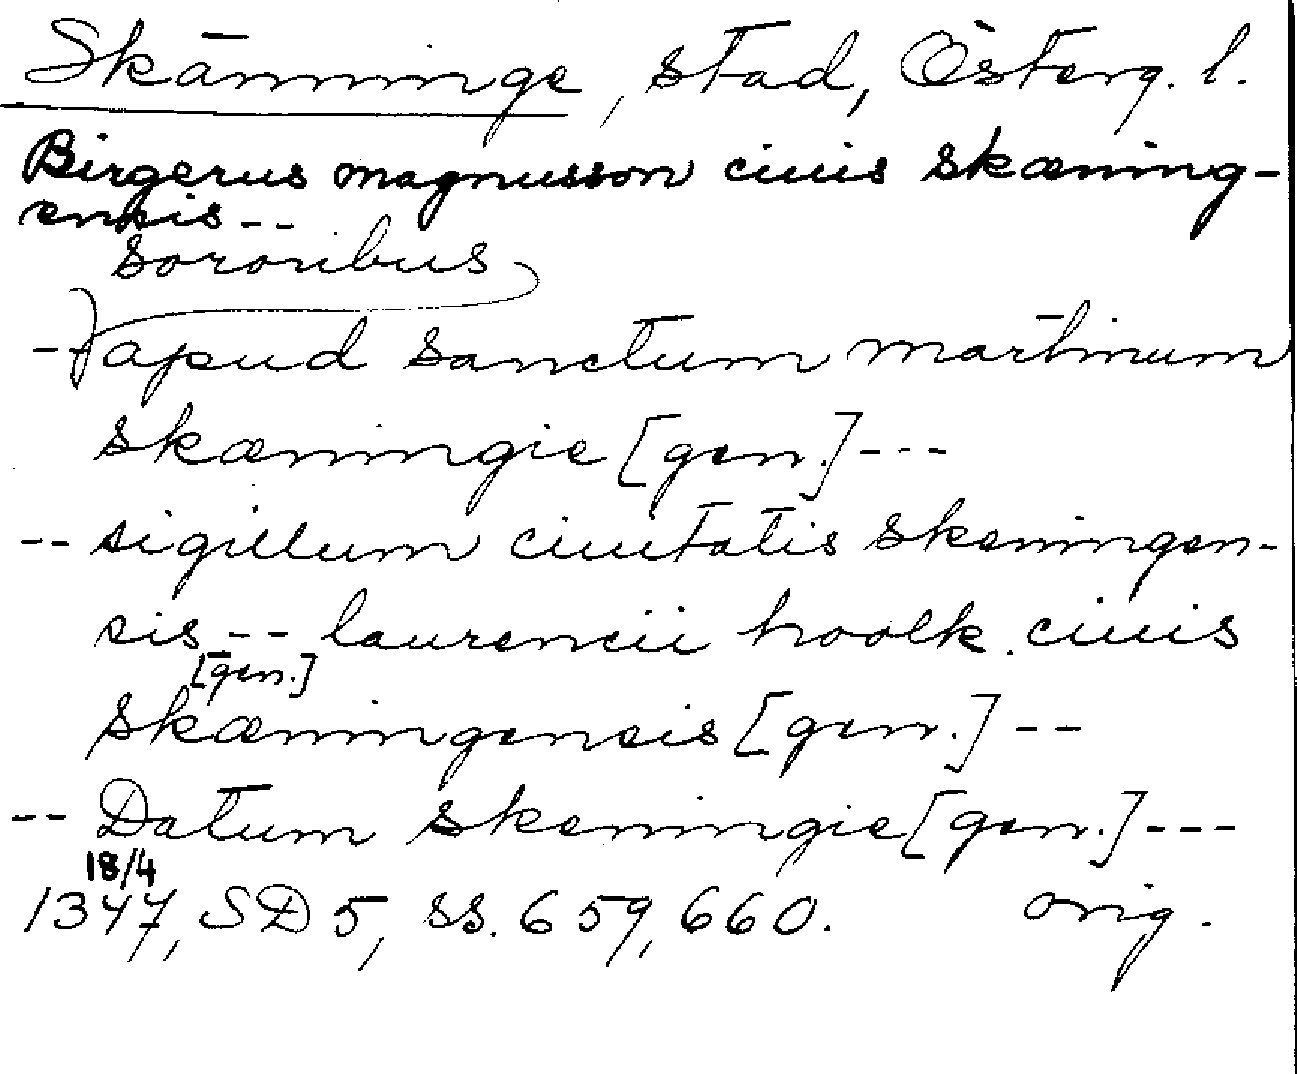 Skänninge, stad, Österg. l.
Birgerus magnusson ciuis skæning-
ensis --
sororibus
-- apud sanctum martinum
skæningie [gen.] ---
-- sigillum ciuitatis skeningen-
sis -- laurencii hoolk ciuis
[gen.]
skæningensis [gen.] --
-- Datum skeningie [gen.] ---
18/4
1347, SD 5, ss. 659, 660. orig.